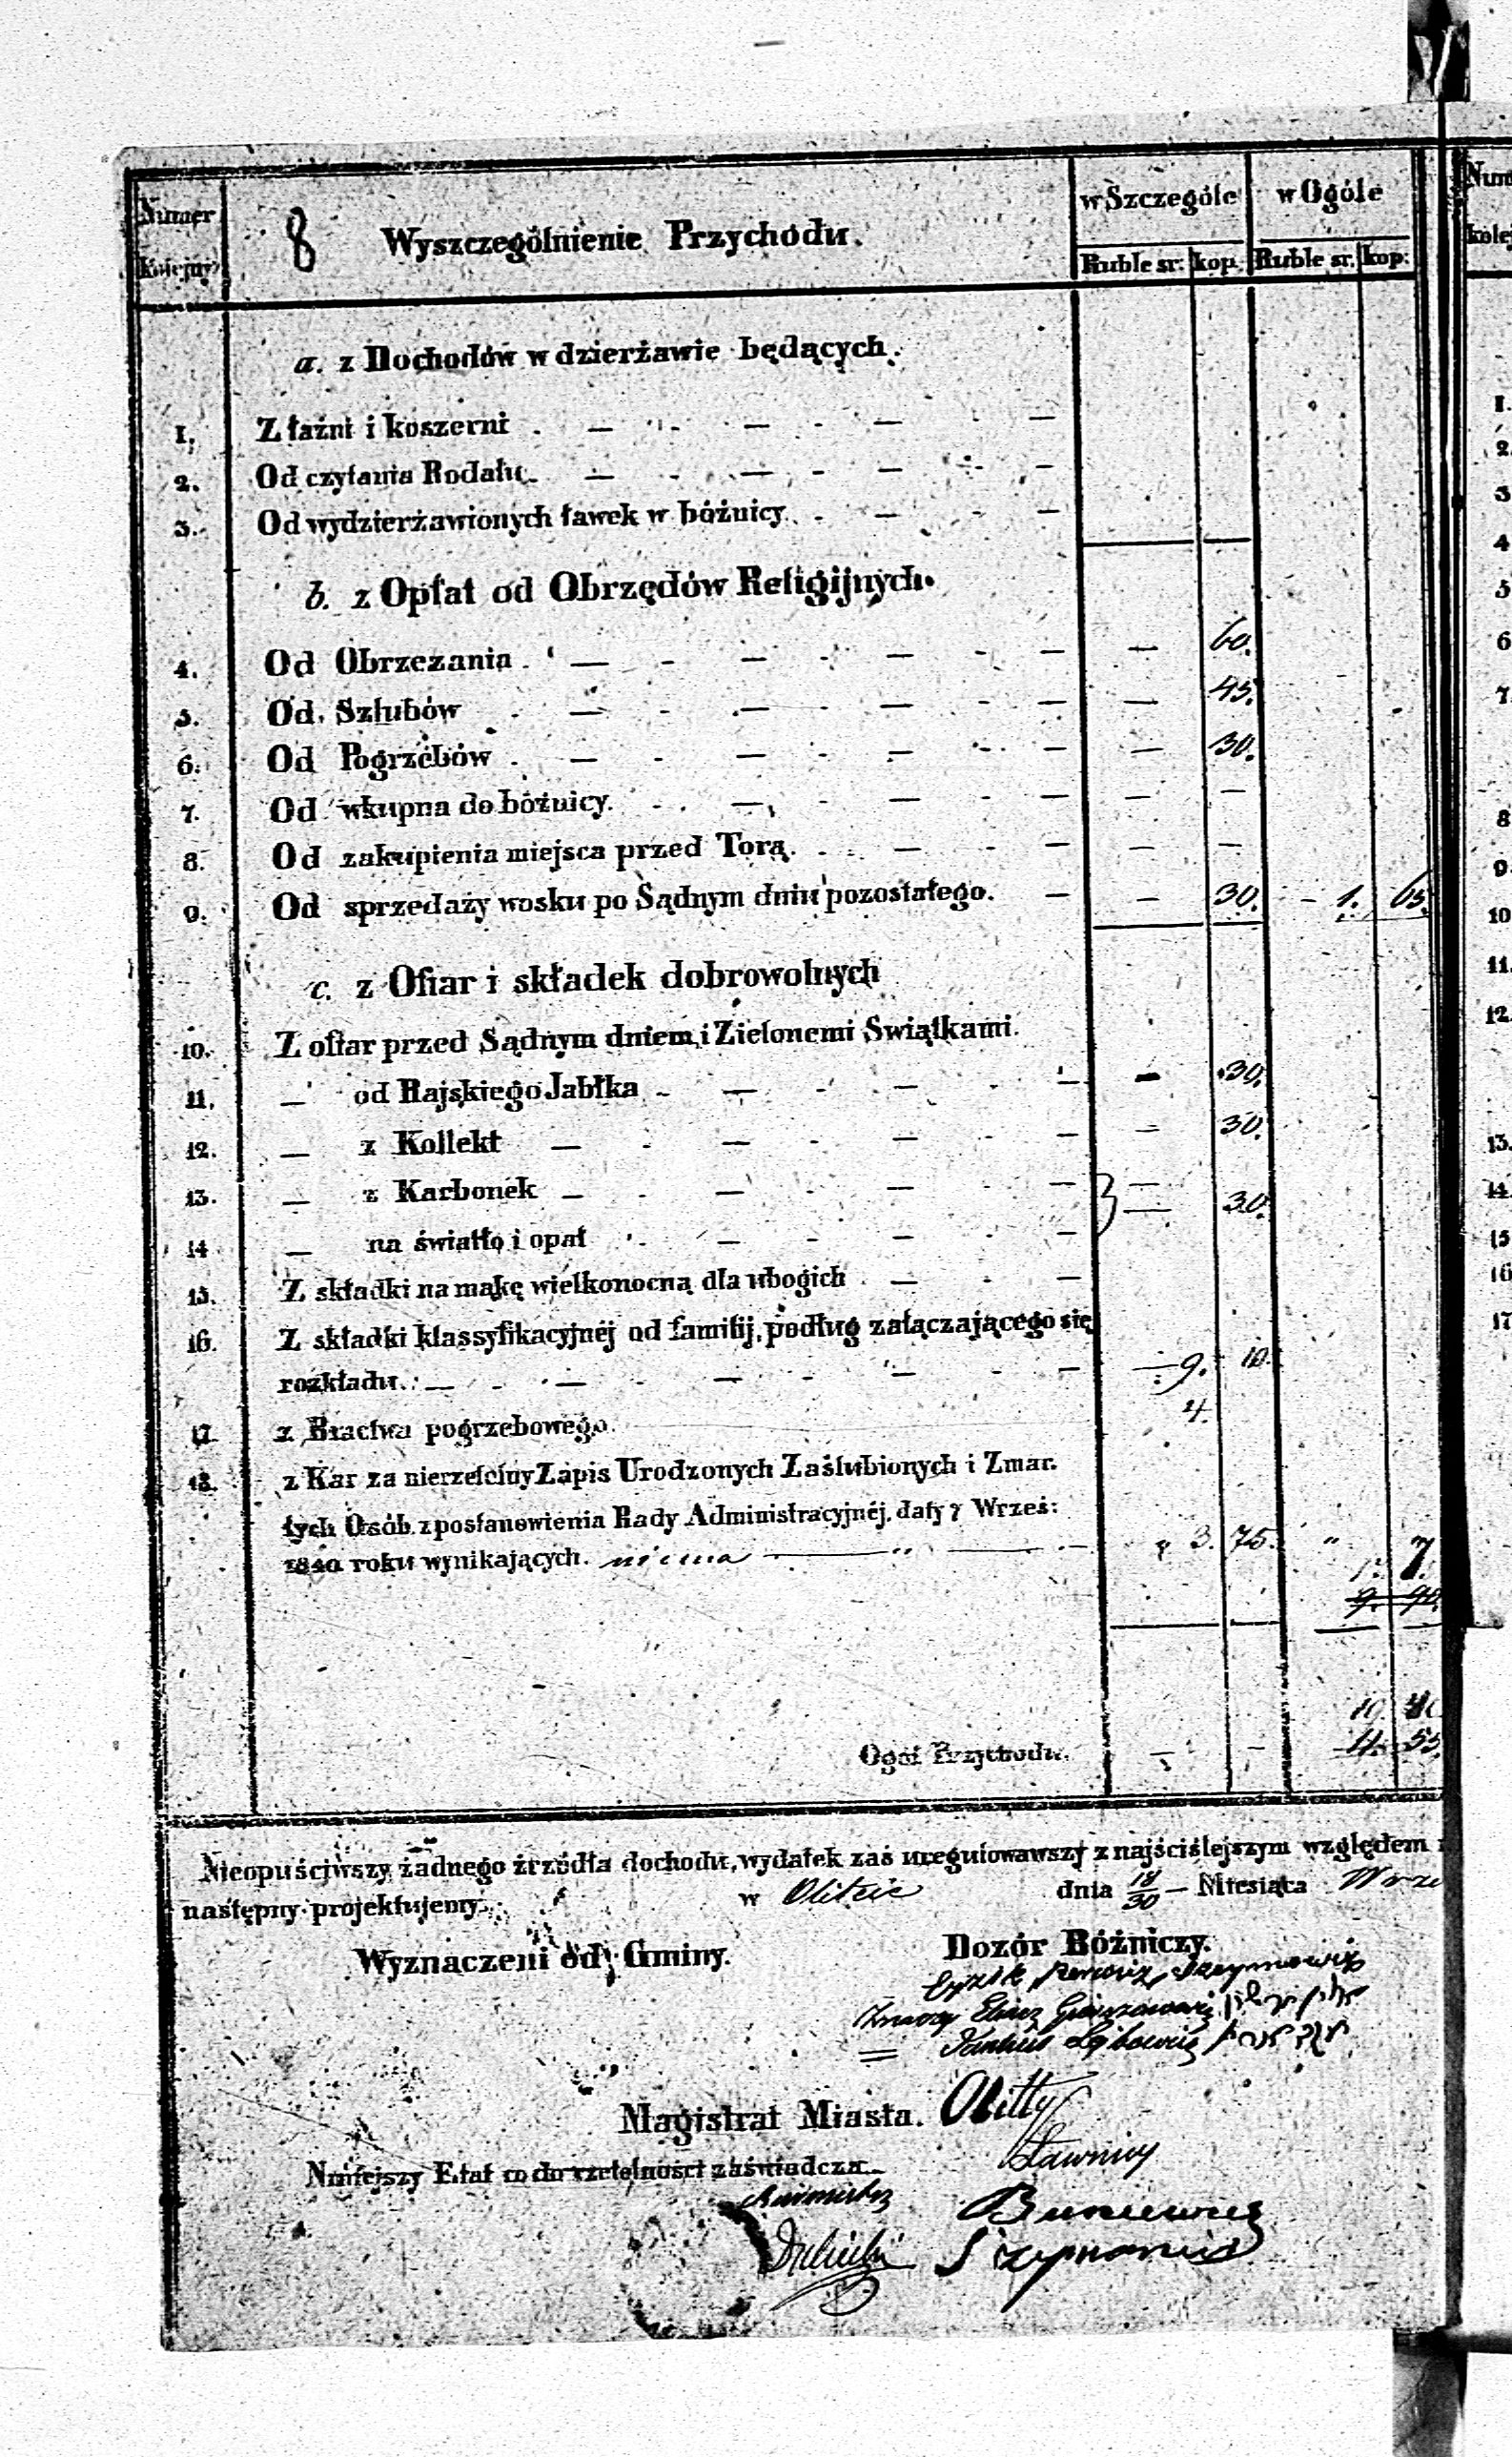 Numer w Szczególe w Ogóle
8 Wyszczególnienie Przychodu.
kolejny Ruble sr. kop. Ruble sr. kop:
a. z Dochodów w dzierżawie będących.
1. Z łaźni i koszerni . — — — —
2. Od czytania Rodału. — — — —
3. Od wydzierżawionych ławek w bóżnicy. — —
b. z Opłat od Obrzędów Religijnych.
4. Od Obrzezania . — — — — — 60.
5. Od Szlubów — — — — — 45.
6. Od Pogrzebów . — — — — — 30.
7. Od wkupna do bóżnicy. — — — — —
8. Od zakupienia miejsca przed Torą. — — — —
9. Od sprzedaży wosku po Sądnym dniu pozostałego. — — 30. – 1. 65
c. z Ofiar i składek dobrowolnych
10. Z ofiar przed Sądnym dniem i Zielonemi Swiątkami.
11. — od Rajskiego Jabłka — — — — 30.
12. — z Kollekt — — — — — 30.
13. — z Karbonek — — — — —
14 — na światło i opał — — — — 30.
15. Z składki na mąkę wielkonocną dla ubogich . — —
16. Z składki klassyfikacyjnéj od familij, podług załączającego się
rozkładu. — — — — — — 9. 10.
17. z Bractwa pogrzebowego. 4.
18. z Kar za nierzetelny Zapis Urodzonych Zaślubionych i Zmar.
łych Osób z postanowienia Rady Administracyjnéj, daty 7 Wrześ:
1840 roku wynikających. niema — „ — 3. 75. „ 7.
9. 90.
Ogół Przychodu. — — 55.
Nieopuściwszy żadnego źrzódła dochodu, wydatek zaś uregulowawszy z najściślejszym względem
następny projektujemy. w Olitcie dnia 18/30 — Miesiąca
Wyznaczeni od Gminy. Dozór Bóżniczy.
Magistrat Miasta. Olitty
Niniejszy Etat co do rzetelności zaświadcza. Ławnicy